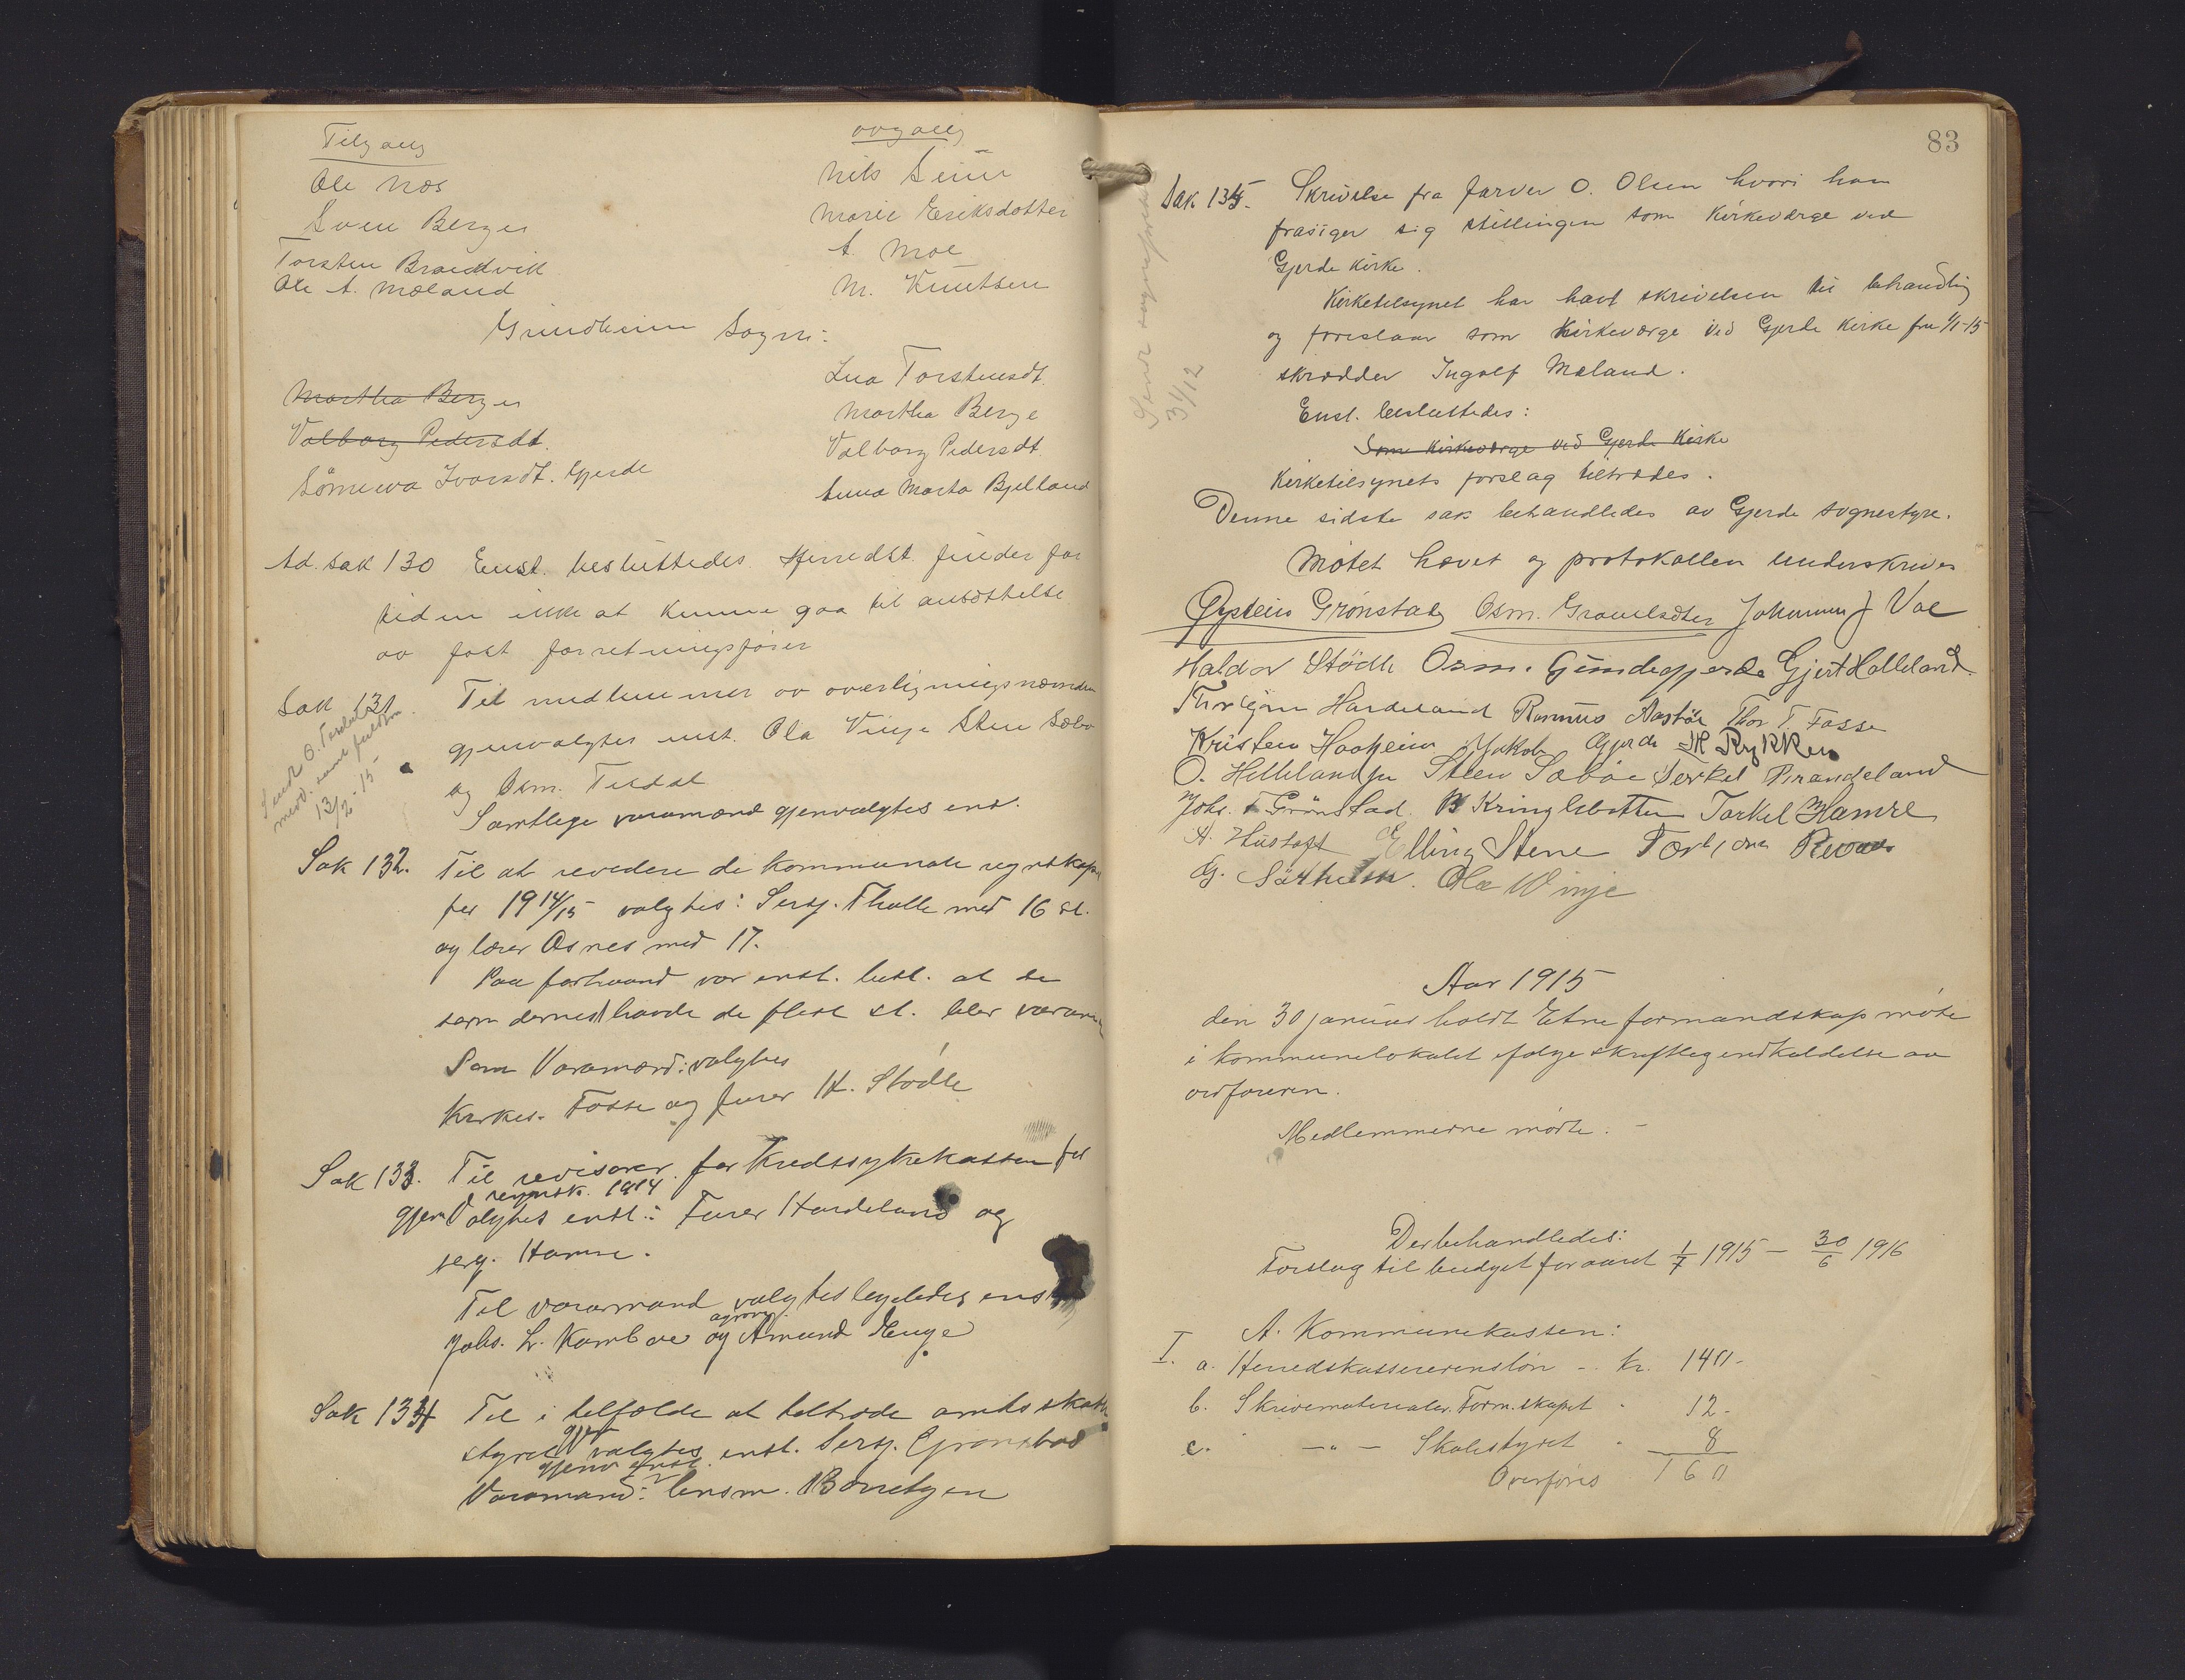 Tilgang
Ole Næs
Sven Berge
Torsten Brandvik
Ole A. Mæland
avgang
Nils Seim
Marie Eriksdotter
A. Moe
M. Knutsen
Grindheim Sogn:
Martha Berge
Valborg Pedersdt.
Sönneva Ivarsdt. Gjerde
Torstensdt.
Martha Berge
Valborg Pedersdt.
Anna Marta Bjelland
Ad. sak 130 Enst. besluttedes Herredst. finder for
tiden ikke at kunne gaa til ansættelse
av fast forretningsfører
Sak 131. Til medlemmer av overligningsnævnden
gjenvalgtes enst. Ola Vinje Sten Sæbø
og Osm.
Samtlige varamænd gjenvalgtes enst.
Sendt O.
13/2-15
Sak 132. Til at revidere de kommunale regnskaper
for 1914/15 valgtes: Sersj. Tholle med 16 st.
og lærer Osnes med 17.
Paa forhaand var enst. besl. at de
som dernest havde de flest st. blev varamænd
Som Varamænd: valgtes
Kirkes. Fosse og furer H. Stødle
Sak 133. Til revisorer for Kredssykekassen for
regnsk. 1914
gjenvalgtes enst.: Furer Hardeland og
serg. Hamre.
Til varamænd valgtes ligeledes enst.
Johs. L. Kambe og Amund Heuge
Sak 134 Til i tilfælde at tiltræde amtsskatte
styret gjenvalgtes enst. Sersj. Grønstad
gjenv. enst.
Varamand: lensm. Børretzen
83
Sak 135. Skrivelse fra farver O. Olsen hvori han
frasiger sig stillingen som Kirkeværge ved
Gjerde Kirke.
Kirketilsynet har havt skrivelsen til behandling
og foreslaar som Kirkeværge ved Gjerde Kirke fra 1/1-15
skrædder Ingolf Mæland.
Enst. besluttedes:
Som Kirkeværge ved Gjerde Kirke
Kirketilsynets forslag tiltrædes.
Denne sidste sak behandledes av Gjerde sognestyre.
31/12
Møtet hævet og protokollen underskrives
Øystein Grønstad Osm. Johannes J Vae
Haldor Stödle Osm. Grindegjerde Gjert Halleland.
Torbjørn Hardeland Rasmus Aastöl Thor T. Fosse
Kristen Haaheim Jakob Gjerde Rykken
O. Helleland jr Sten Sæbøe Terkel Brandeland
Johs. T Grönstad. B Kringlebotten Torkel Hamre
A. Hustoft Elling Stene Torbjörn
G. Sörheim. Ola Winje
Aar 1915
den 30 januar holdt Etne formandskap møte
i kommunelokalet ifølge skriftlig indkaldelse av
ordføreren.
Medlemmerne møtte. -
Der behandledes:
Forslag til budget for aaret 1/7 1915 - 30/6 1916
A. Kommunekassen:
I. a. Herredskassererens løn - kr. 140-
b. Skrivematerialer. Form.skapet " 12-
c. " -"- Skolestyret " 8
Overføres 160